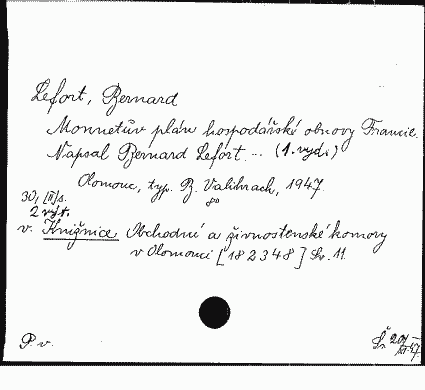 Lefort, Bernard
Monnetův plán hospodářské obnovy Francie.
Napsal Bernard Lefort ... (1. vyd.)
Olomouc, typ. R. Valihrach, 1947.
8°
30, [II] s.
2 výt.
v. Knižnice Obchodní a živnostenské komory
v Olomouci [182348] Sv. 11.
P. v.